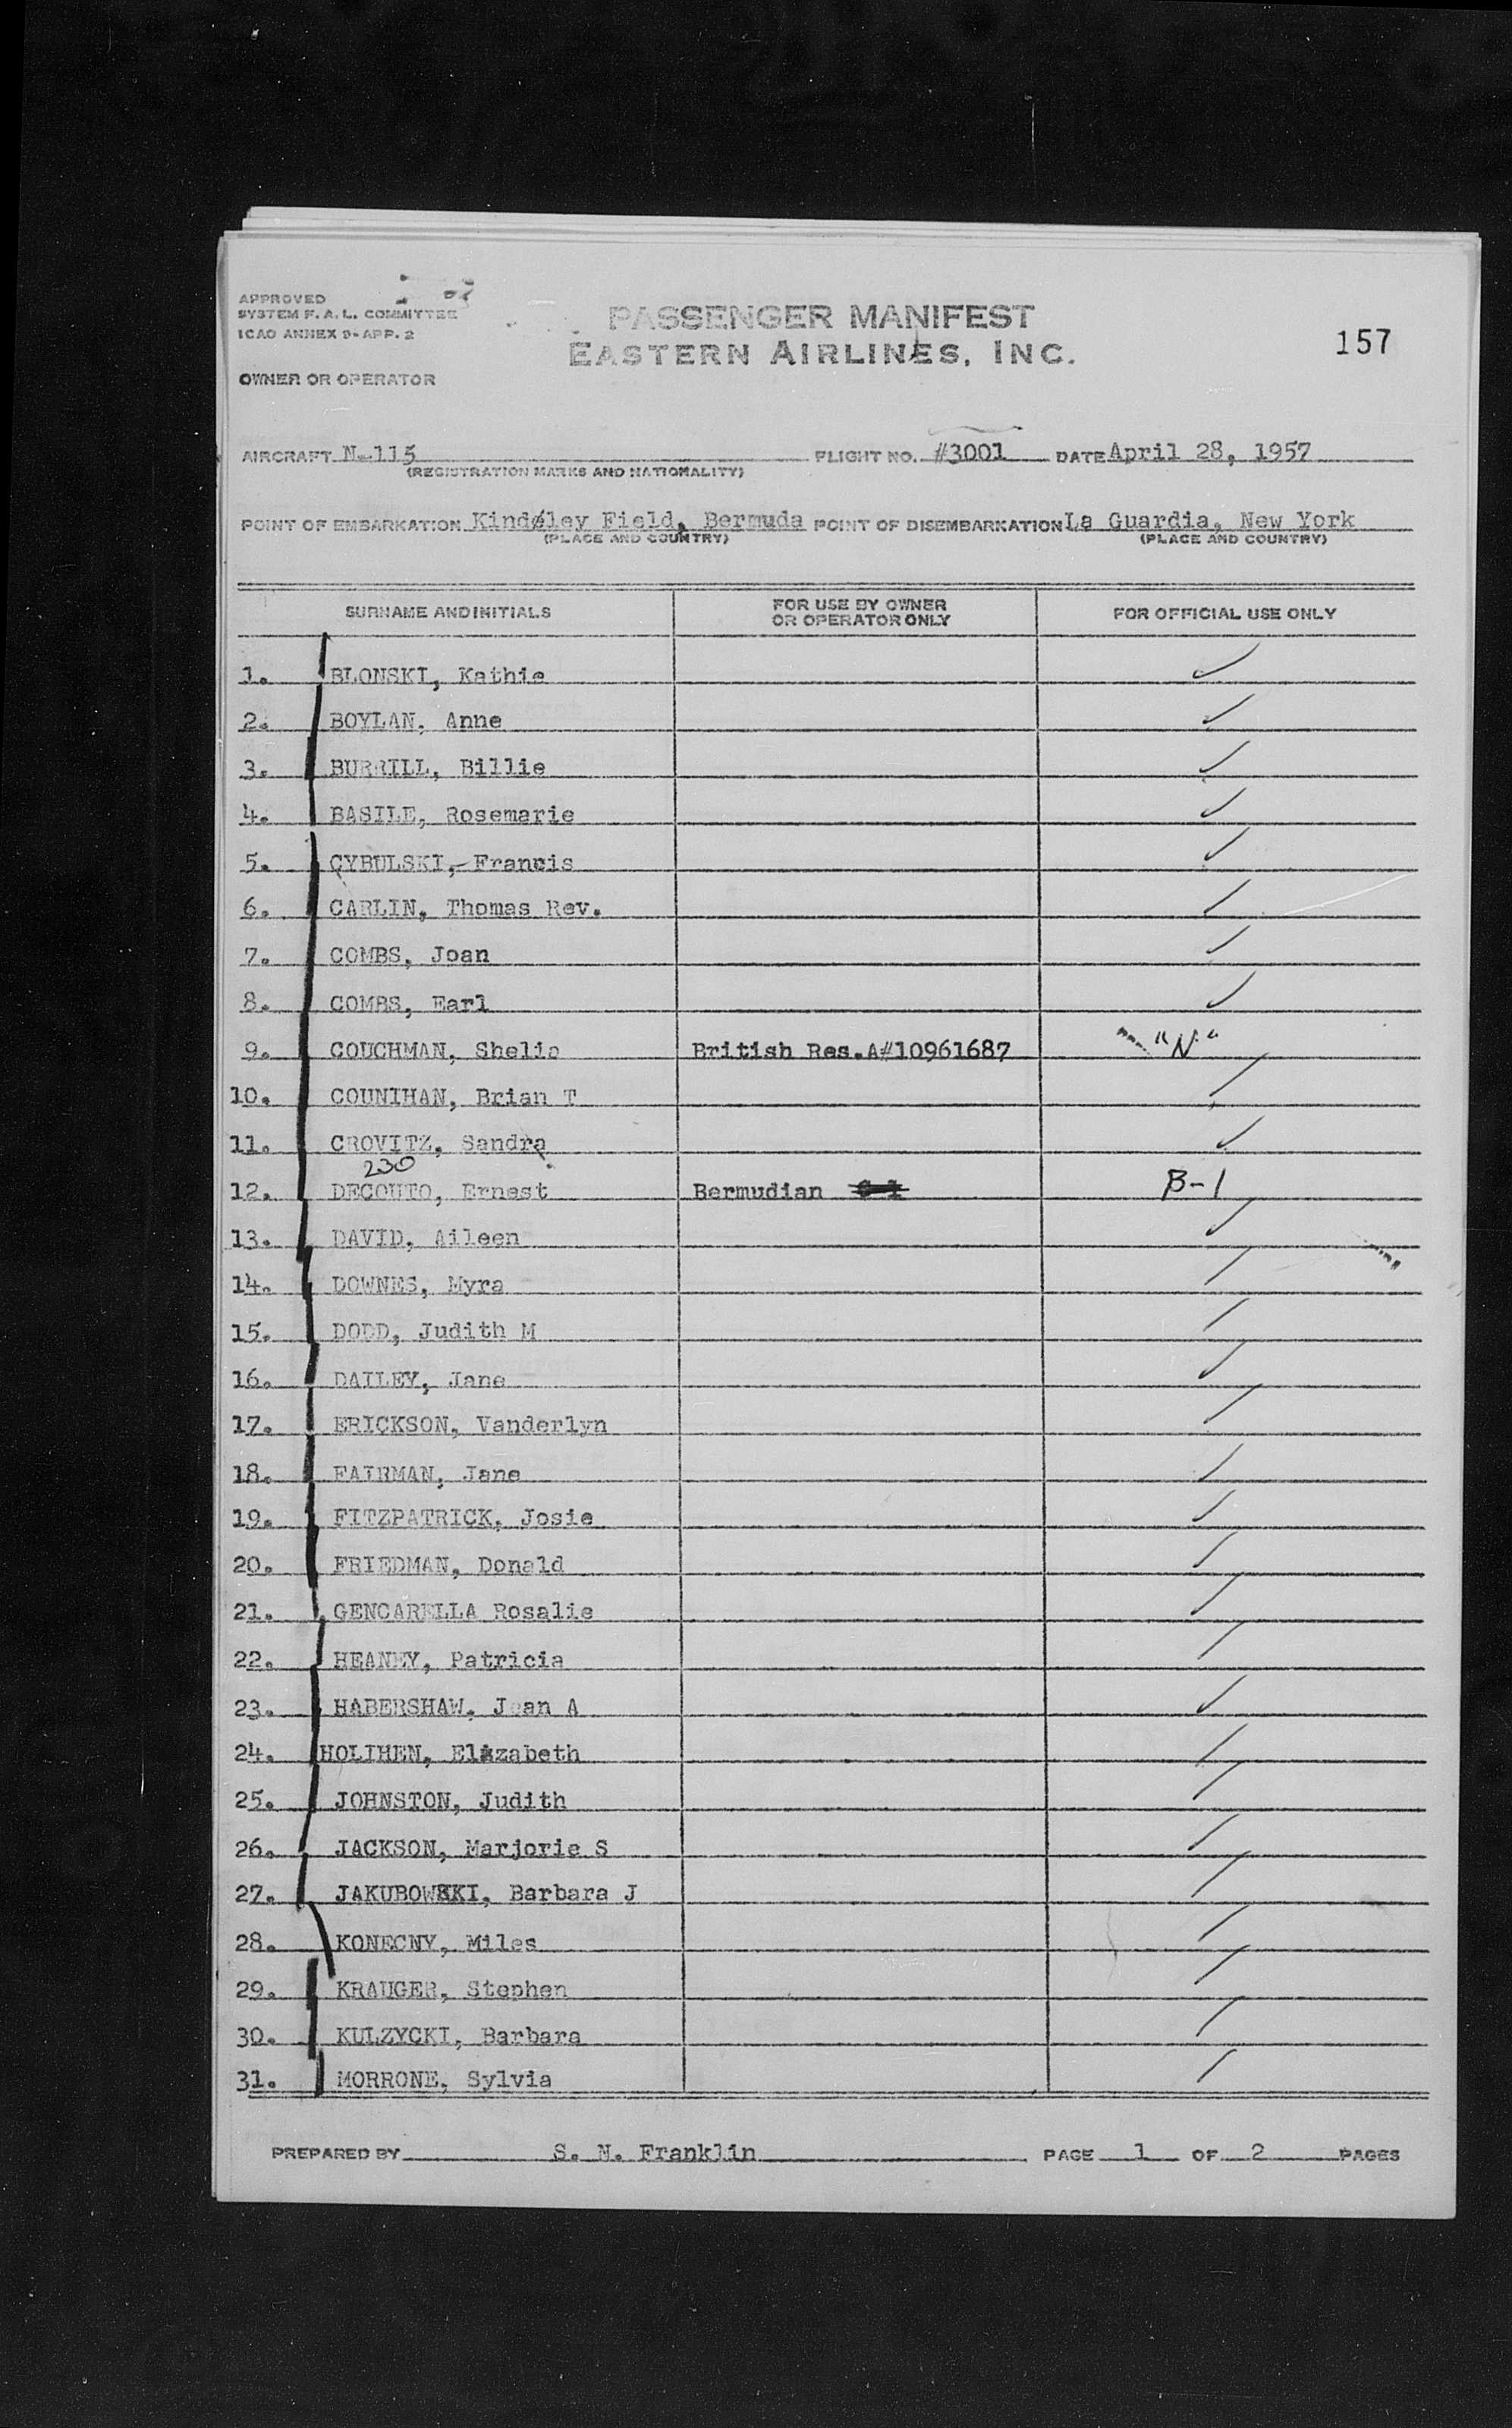 APPROVED
SYSTEM F. A. L. COMMITTEE
ICAO ANNEX 9-APP. 2
PASSENGER MANIFEST
EASTERN AIRLINES, INC.
157
OWNER OR OPERATOR
AIRCRAFT N-115 FLIGHT NO. #3001 DATE April 28, 1957
(REGISTRATION MARKS AND NATIONALITY)
POINT OF EMBARKATION Kindsley Field, Bermuda POINT OF DISEMBARKATION La Guardia, New York
(PLACE AND COUNTRY) (PLACE AND COUNTRY)
SURNAME AND INITIALS FOR USE BY OWNER OR OPERATOR ONLY FOR OFFICIAL USE ONLY
1. BLONSKI, Kathie ✓
2. BOYLAN, Anne ✓
3. BURRILL, Billie ✓
4. BASILE, Rosemarie ✓
5. CYBULSKI, Francis ✓
6. CARLIN, Thomas Rev. ✓
7. COMBS, Joan ✓
8. COMBS, Earl ✓
9. COUCHMAN, Shelia British Res. A#10961687 "N"
10. COUNIHAN, Brian T ✓
11. CROVITZ, Sandra ✓
230
12. DECOUTO, Ernest Bermudian B-1
13. DAVID, Aileen ✓
14. DOWNES, Myra ✓
15. DODD, Judith M ✓
16. DAILEY, Jane ✓
17. ERICKSON, Vanderlyn ✓
18. FAIRMAN, Jane ✓
19. FITZPATRICK, Josie ✓
20. FRIEDMAN, Donald ✓
21. GENCARELLA Rosalie ✓
22. HEANEY, Patricia ✓
23. HABERSHAW, Joan A ✓
24. HOLIHEN, Elizabeth ✓
25. JOHNSTON, Judith ✓
26. JACKSON, Marjorie S ✓
27. JAKUBOWSKI, Barbara J ✓
28. KONECNY, Miles ✓
29. KRAUGER, Stephen ✓
30. KULZYCKI, Barbara ✓
31. MORRONE, Sylvia ✓
PREPARED BY S. N. Franklin PAGE 1 OF 2 PAGES